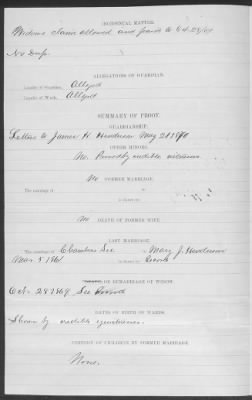 INCIDENTAL MATTER.
Widows claim allowed and paid to Oct 28/69
No Dup.
ALLEGATIONS OF GUARDIAN.
Loyalty of Guardian, Alleged
Loyalty of Wards, Alleged
SUMMARY OF PROOF.
GUARDIANSHIP.
Letters to James H. Henderson May 2 1870
OTHER MINORS.
No. Proved by credible witnesses.
No FORMER MARRIAGE.
The marriage of
to
No DEATH OF FORMER WIFE.
LAST MARRIAGE.
The marriage of Chambers Lee to Mary J. Henderson
Mar. 5 186
DEATH OR REMARRIAGE OF WIDOW.
Oct. 28 1869. See Proved
DATES OF BIRTH OF WARDS.
Shown by credible
CUSTODY OF CHILDREN BY FORMER MARRIAGE
None.